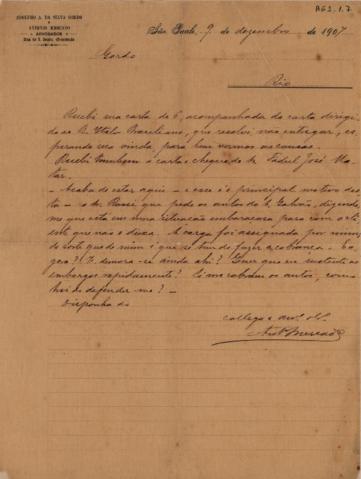 AG2.1.7
ADOLPHO A. DA SILVA GORDO
E
ANTONIO MERCADO
ADVOGADOS
Rua de S. Bento,
São Paulo, 9 de dezembro de 1907
Gordo
Rio
Recebi sua carta de 6, acompanhada da carta dirigi-
da ao B. Italo Brasiliano, que resolvi não entregar, es-
perando sua vinda, para bem vermos as cousas.
Recebi tambem a carta e cheque do dr. Fadul José Ma-
tar.
— Acaba de estar aqui — e esse é o principal motivo des-
ta — o dr. Rossi que pede os autos do dizendo-
me que está em uma situação embaraçosa para com o cli-
ente que não o deixa. A carga foi assignada por mim,
de sorte que de mim é que se tem de fazer a cobrança. E a-
gora? V. demora-se ainda ahi? Quer que eu sustente os
embargos rapidamente? Si me cobram os autos, como
hei de defender-me? —
Disponha do
collega e amº. obº.
Antº Mercado